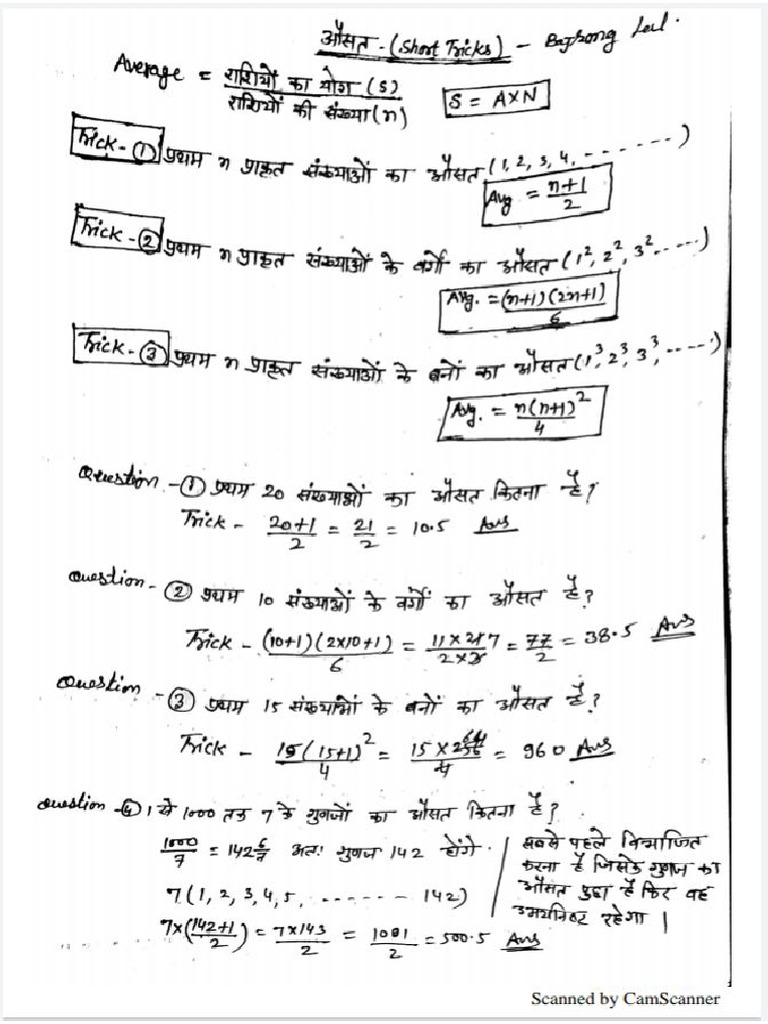 औसत - (Short Tricks) -
Average = राशियों का योग (S) / राशियों की संख्या (n)
S = A×N
Trick - ① प्रथम n प्राकृत संख्याओं का औसत (1, 2, 3, 4, - - - - - - -)
Avg = n+1 / 2
Trick - ② प्रथम n प्राकृत संख्याओं के वर्गों का औसत (1², 2², 3², - - - -)
Avg. = (n+1)(2n+1) / 6
Trick - ③ प्रथम n प्राकृत संख्याओं के घनों का औसत (1³, 2³, 3³, - - - -)
Avg. = n(n+1)² / 4
Question - ① प्रथम 20 संख्याओं का औसत कितना है?
Trick - 20+1 / 2 = 21 / 2 = 10.5 Ans
Question - ② प्रथम 10 संख्याओं के वर्गों का औसत है?
Trick - (10+1)(2×10+1) / 6 = 11×21 7 / 2×3 = 77 / 2 = 38.5 Ans
Question - ③ प्रथम 15 संख्याओं के घनों का औसत है?
Trick - 15(15+1)² / 4 = 15×256 64 / 4 = 960 Ans
Question - ④ 1 से 1000 तक 7 के गुणजों का औसत कितना है?
1000 / 7 = 142 6/7 अतः गुणज 142 होंगे.
7(1, 2, 3, 4, 5, - - - - - - - 142)
7×(142+1 / 2) = 7×143 / 2 = 1001 / 2 = 500.5 Ans
सबसे पहले विभाजित
करना है जिसके गुणज का
औसत पुछा है फिर वह
रहेगा।
Scanned by CamScanner